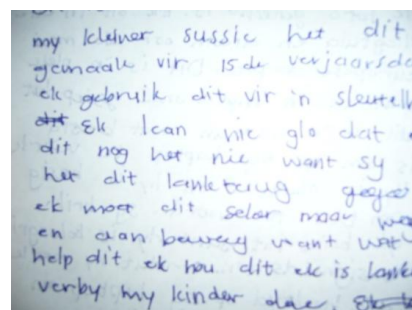 my kleiner sussie het dit
gemaak vir 15de verjaarsda
ek gebruik dit vir 'n sleutelh
dit Ek kan nie glo dat
dit nog het nie want sy
het dit lankterug gegee
ek moet dit seker maar
en aan beweeg want wat
help dit ek hou dit ek is lank
verby my kinder dae. Ek